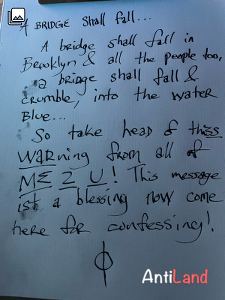 A BRIDGE Shall fall...
A bridge shall fall in
Brooklyn & all the people too,
a bridge shall fall &
crumble, into the water
Blue...
So take head of this
WARning from all of
ME 2 U! This message
ist a blessing now come
here for confessing!
AntiLand